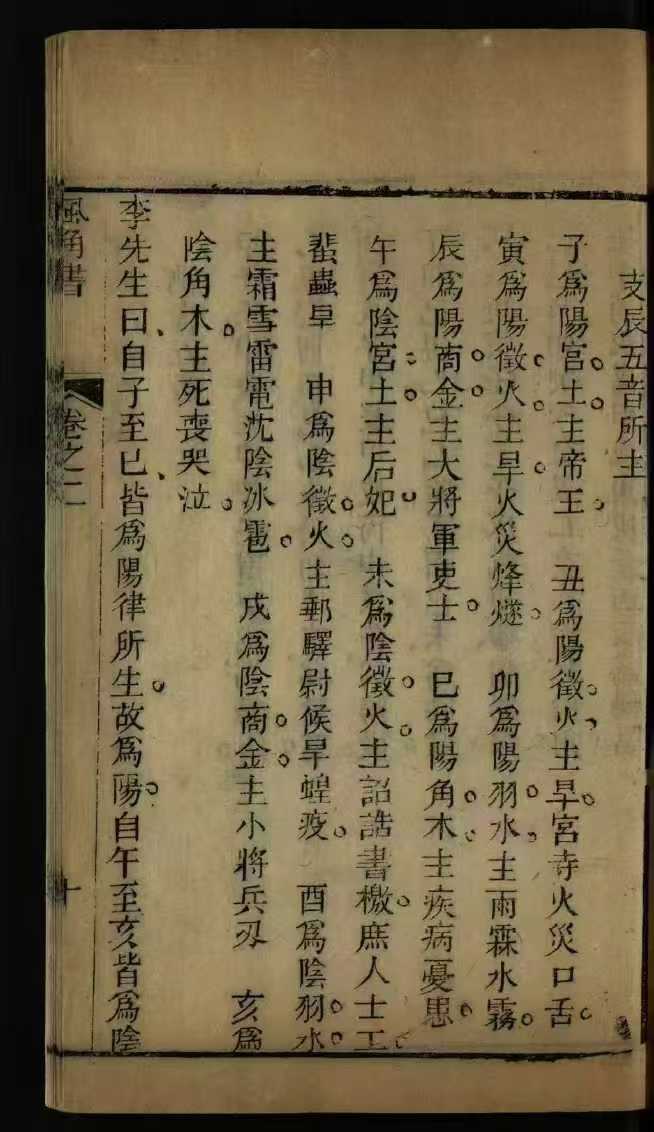 支辰五音所主
子爲陽宮土主帝王　丑爲陽徵火主旱宮寺火災口舌
寅爲陽徵火主旱火災烽燧　卯爲陽羽水主雨霖水霧
辰爲陽商金主大將軍吏士　巳爲陽角木主疾病憂患
午爲陰宮土主后妃　未爲陰徵火主詔誥書檄庶人士工
蜚蟲旱　申爲陰徵火主郵驛尉候旱蝗疫　酉爲陰羽水
主霜雪雷電沈陰冰雹　戌爲陰商金主小將兵刃　亥爲
陰角木主死喪哭泣
李先生曰自子至巳皆爲陽律所生故爲陽自午至亥皆爲陰
風角書
卷之二
十